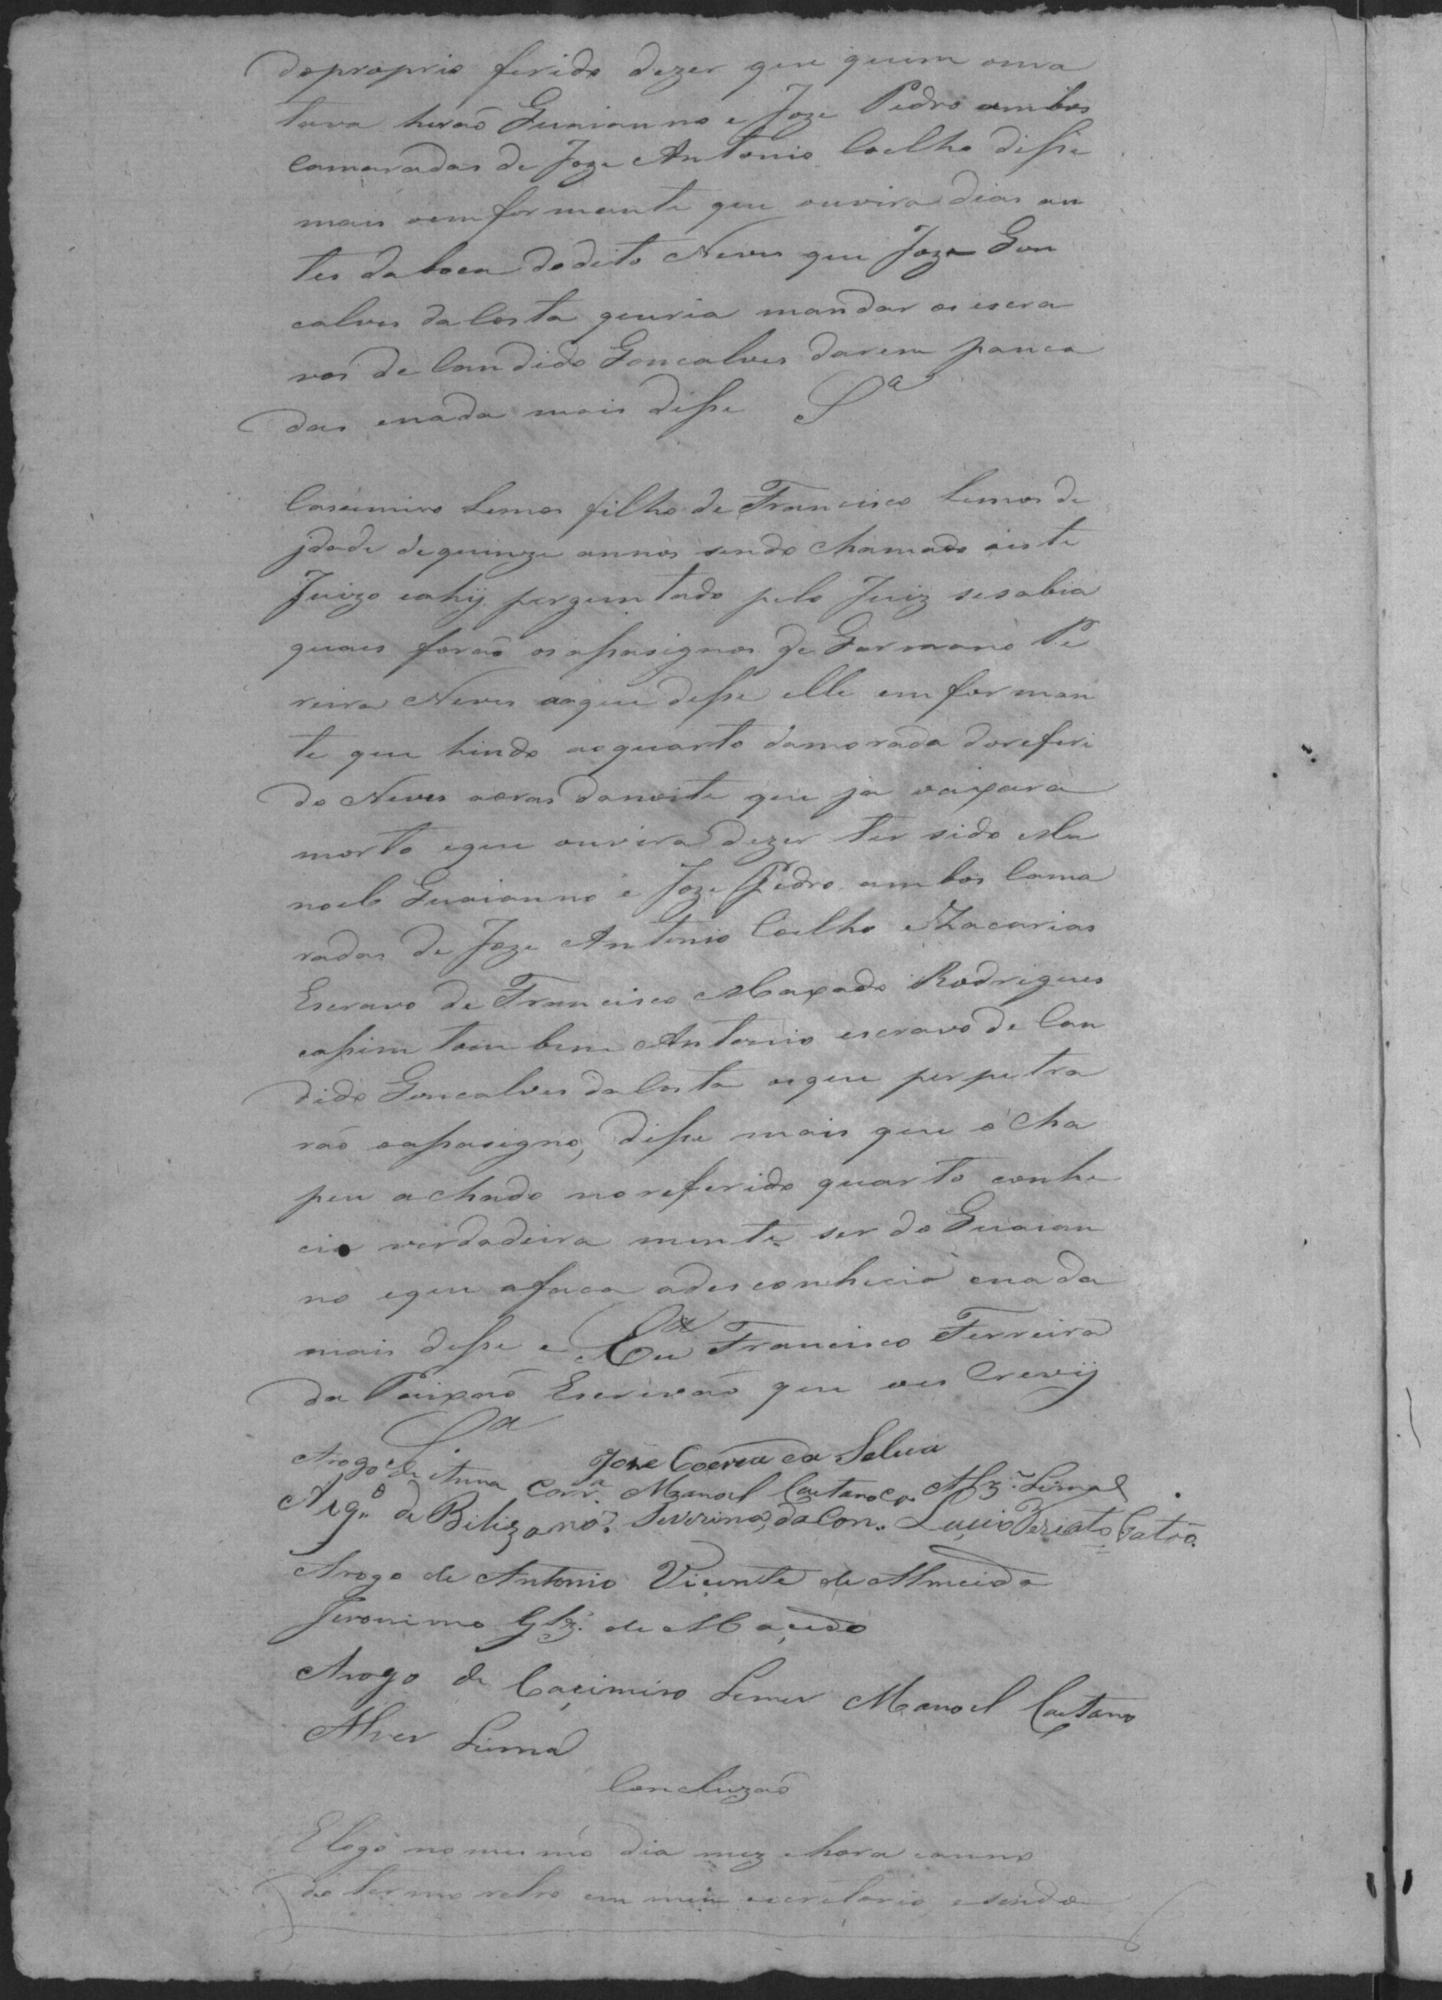 do proprio ferido dezer que quem oma
tava herão Guaianno e Joze Pedro ambos
Camaradas de Joze Antonio Coelho disse
mais oemformante que ouvira dias an
tes daboca dodito Neves que Joze Gon
calves daCosta queria mandar os escra
vos de Candido Goncalves darem panca
das enada mais disse Sª
Casimiro Lemos filho de Francisco Lemos de
jdade dequinze annos sendo chamado aeste
Juizo eahij perguntado pelo Juiz sesabia
quais forão osassasignos de Germano Pe
reira Neves aoque desse elle emforman
te que hindo aoquarto damorada doreferi
do Neves aoras danoite que já oaixara
morto eque ouvira dezer ter sido Ma
noel Guaianno e Joze Pedro ambos Cama
radas de Joze Antonio Coelho eZacarias
Escravo de Francisco Maxado Rodrigues
eassim tambem Antonio escravo de Can
dido Goncalves daCosta oque perpetra
rão oassasigno, disse mais que o cha
peu achado noreferido quarto conhe
cia verdadeira mente ser do Guaian
no eque afaca adesconhecia enada
mais desse e Eu Francisco Ferreira
da Paixaõ Escrivaõ que oes Crevij
Jose Correa da Selva
Arogo de Anna Corrª. Manoel Caetano
Arg.º de
Severino da Con.
Arogo de Antonio Vicente de Almeida
Jeronimo Glz. de Macedo
Arogo de Caçimiro Lemes Manoel Caetano
Alves Lima
Concluzaõ
E logo nomesmo dia mez ehora eanno
do termo retro em meu escretorio esendo